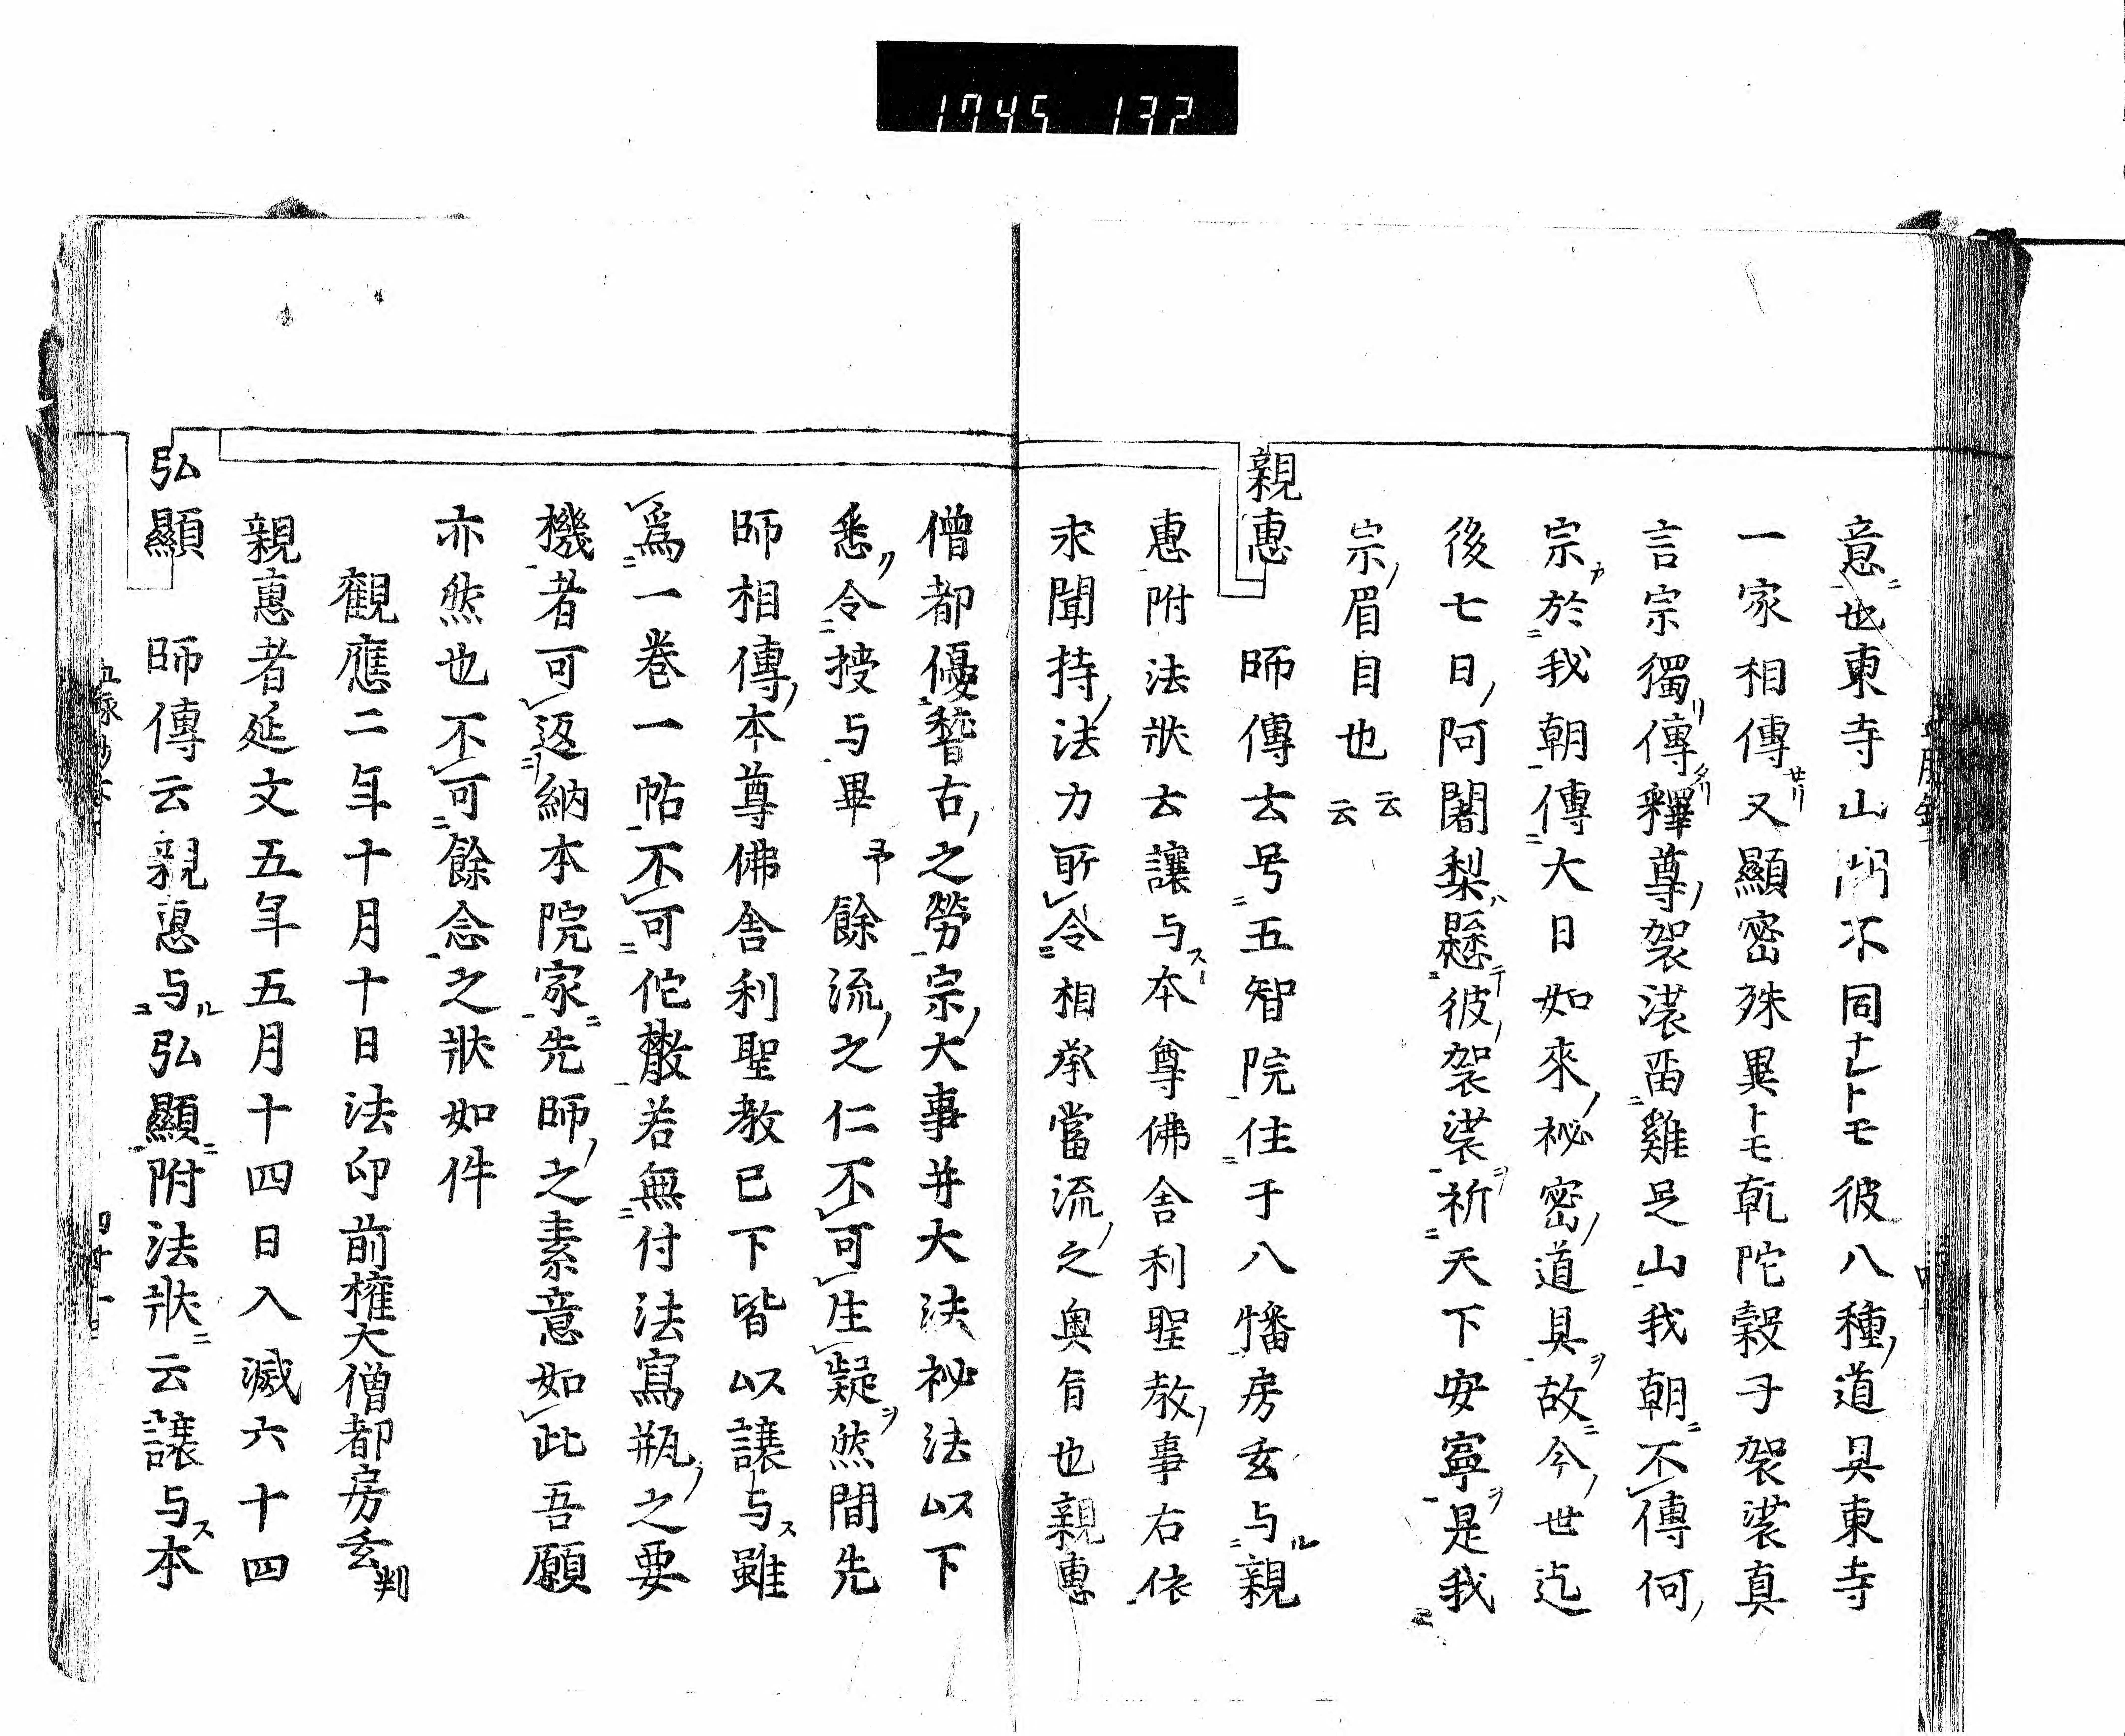 1745 132
意ニ也東寺山門不同ナレトモ彼八種ノ道具東寺
一家相傳セリ又顯密殊異トモ乹陀穀子袈裟真
言宗獨リ傳タリ釋尊ノ袈裟畱雞足山我朝ニ不傳何ノ
宗カ於我朝傳大日如來ノ秘密ノ道具ヲ故ニ今ノ世迄
後七日ノ阿闍梨ハ懸テ彼ノ袈裟ヲ祈天下安寧ヲ是我
宗ノ眉目也云云
親惠 師傳云号五智院住于八幡房玄与ル親
惠附法狀云讓与ス本尊佛舎利聖教ノ事右依
求聞持ノ法力所令相承當流ノ之奥旨也親惠
僧都優稽古ノ之勞宗ノ大事并大法祕法以下
悉ク令授与畢予餘流ノ之仁不可生疑ヲ然間先
師相傳ノ本尊佛舎利聖教已下皆以讓与ス雖
爲一卷一帖不可佗散若無付法寫瓶ノ之要
機者可返納本院家ニ先師ノ之素意如此吾願
亦然也不可餘念之狀如件
觀應二年十月十日法印前權大僧都房玄判
親惠者延文五年五月十四日入滅六十四
弘顯 師傳云親惠与ル弘顯ニ附法狀ニ云讓与ス本